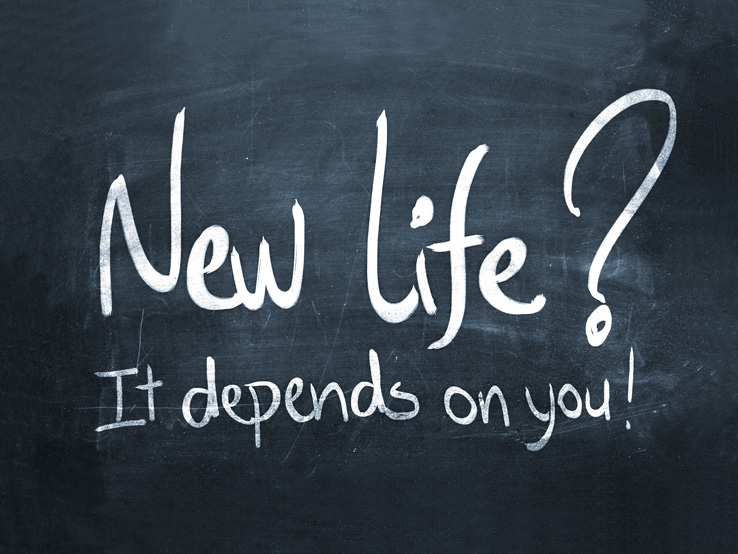 New life?
It depends on you!